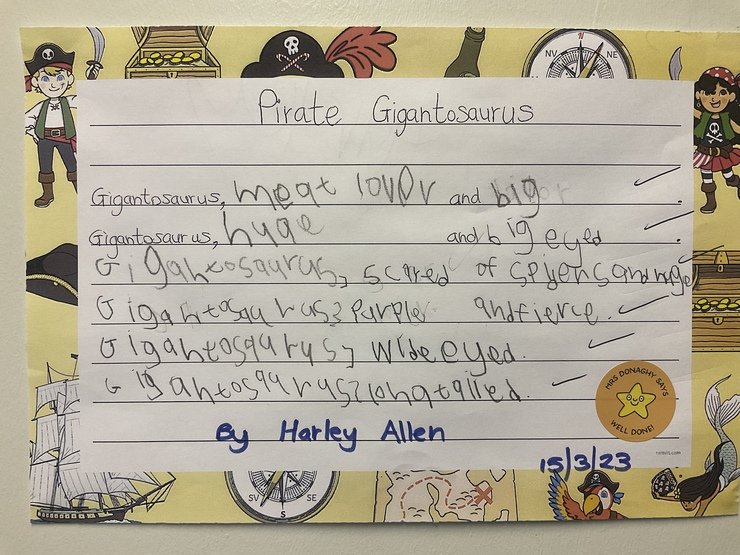 NV N NE
Pirate Gigantosaurus
Gigantosaurus, meat lover and big
Gigantosaurus, huge and big eyed
Gigantosaurus, scared of spiyens and huge
Gigantosaurus, Purple and fierce.
Gigantosaurus, wide eyed.
Gigantosaurus, longtailed.
MRS DONAGHY SAYS
WELL DONE!
By Harley Allen
15/3/23
SV S SE